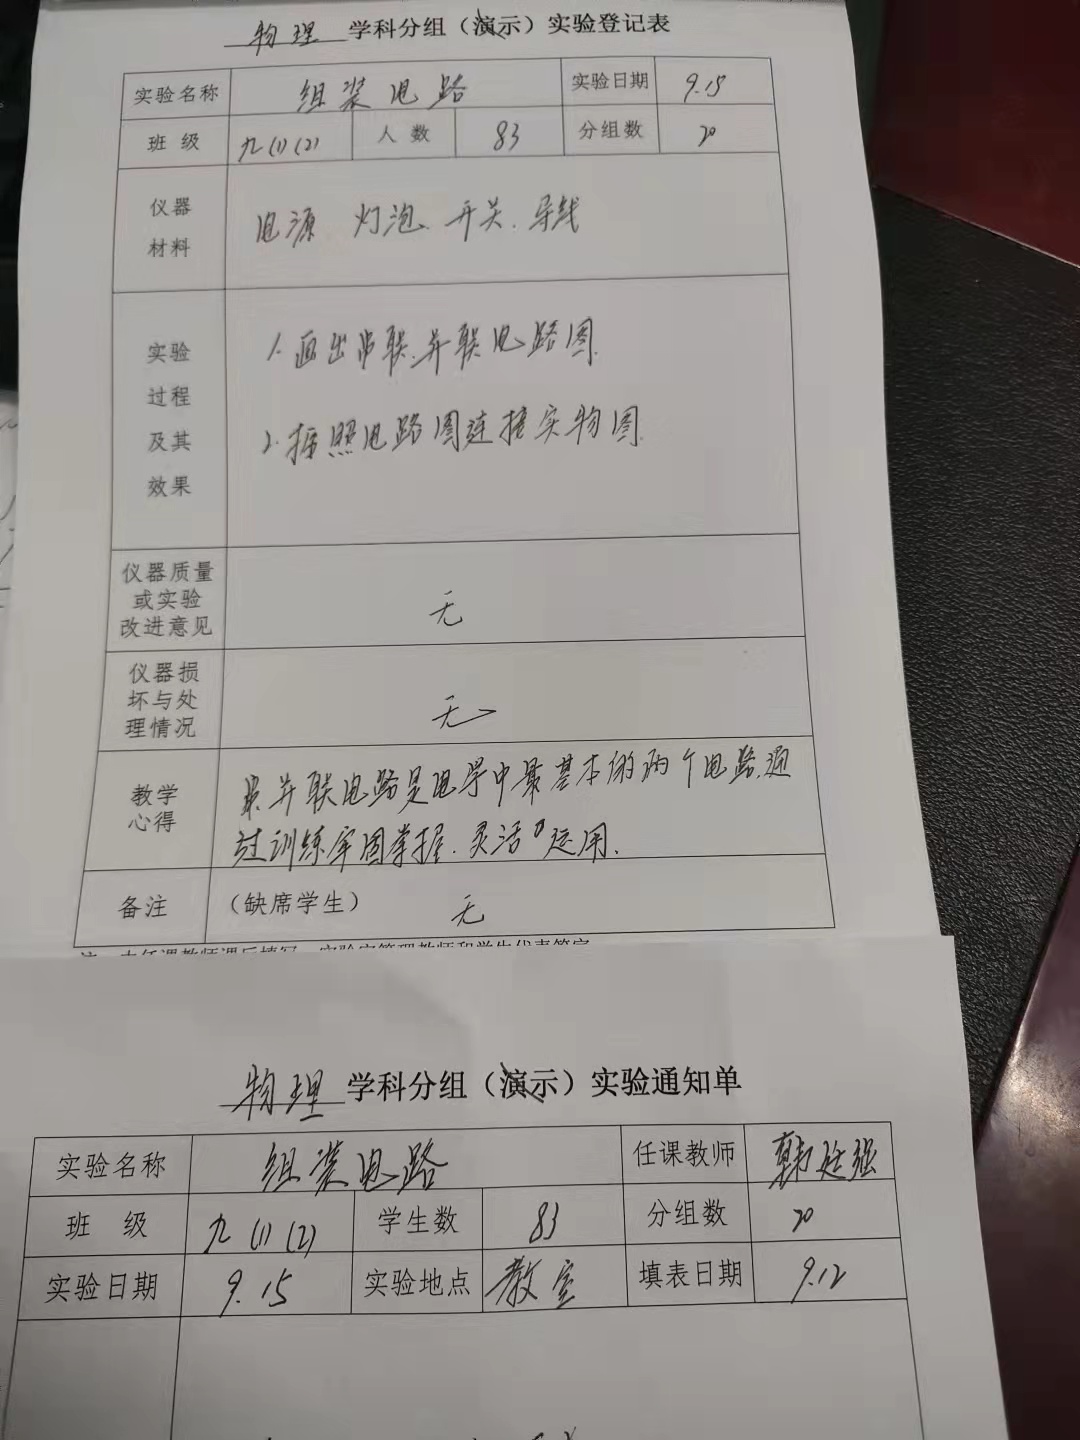 物理 学科分组（演示）实验登记表
实验名称 组装电路 实验日期 9.15
班 级 九(1)(2) 人 数 83 分组数 20
仪器
材料
电源 灯泡、开关、导线
实验
过程
及其
效果
1.画出串联、并联电路图
2.按照电路图连接实物图.
仪器质量
或实验
改进意见
无
仪器损
坏与处
理情况
无
教学
心得
串、并联电路是电学中最基本的两个电路,通
过训练牢固掌握.灵活运用.
备注 （缺席学生） 无
物理 学科分组（演示）实验通知单
实验名称 组装电路 任课教师 韩延强
班 级 九(1)(2) 学生数 83 分组数 20
实验日期 9.15 实验地点 教室 填表日期 9.12